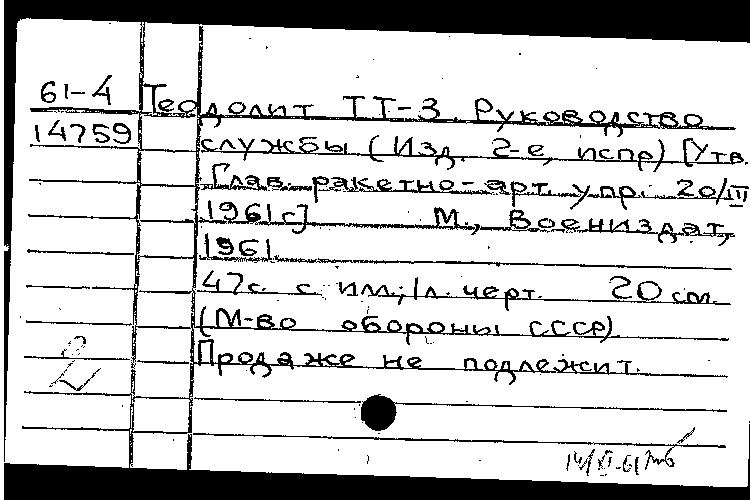 61-4 Теодолит ТТ-3. Руководство
14759 службы (Изд. 2-е, испр) [Утв.
Глав. ракетно-арт. упр. 20/III
1961г] М., Воениздат,
1961.
47с. с ил.; 1л. черт. 20 см.
(М-во обороны СССР).
Продаже не подлежит.
2
14/XI-61